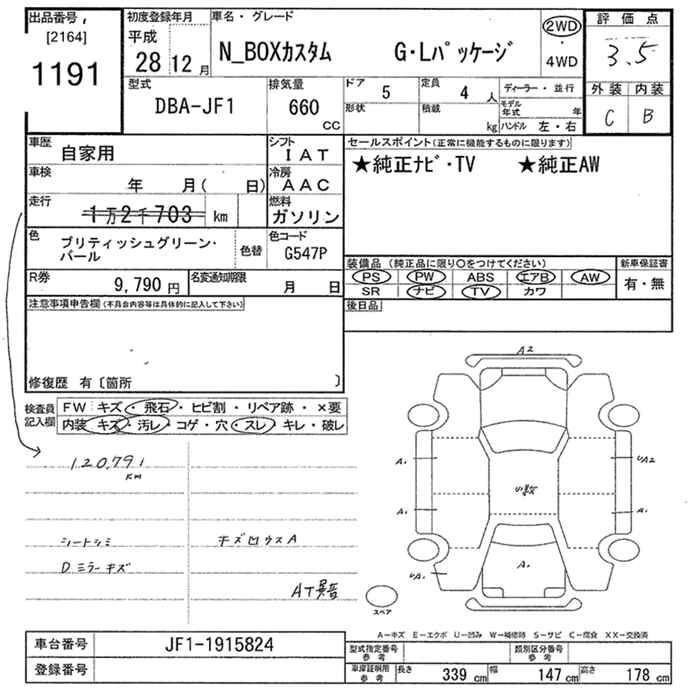 出品番号
[2164]
1191
初度登録年月
平成
28 12 月
車名・グレード
N_BOXカスタム G・Lパッケージ
2WD
・
4WD
評価点
3.5
外装 内装
C B
型式
DBA-JF1
排気量
660 CC
ドア
5
定員
4 人
形状
積載
kg
ディーラー・並行
モデル年式 年
ハンドル 左・右
車歴
自家用
シフト
IAT
車検
年 月( 日)
冷房
AAC
走行
1万2千703 km
燃料
ガソリン
色
ブリティッシュグリーン・パール
色替
色コード
G547P
R券
9,790 円
名変通知期限
月 日
セールスポイント(正常に機能するものに限ります)
★純正ナビ・TV ★純正AW
装備品(純正品に限り○をつけてください)
PS PW ABS エアB AW
SR ナビ TV カワ
新車保証書
有・無
後日品
注意事項申告欄(不具合内容等は具体的に記入して下さい)
修復歴 有〔箇所 〕
検査員記入欄
FW キズ・飛石・ヒビ割・リペア跡・×要
内装 キズ・汚レ・コゲ・穴・スレ・キレ・破レ
120,791
KM
シートシミ
キズ凹ウスA
Dミラーキズ
AT異音
A2
A1
UA2
A1
A1
A1
UA1
スペア
A−キズ E−エクボ U−凹み W−補修跡 S−サビ C−腐食 XX−交換済
車台番号
JF1-1915824
登録番号
型式指定番号
参考
類別区分番号
参考
車庫証明用
参考
長さ 339 cm 幅 147 cm 高さ 178 cm